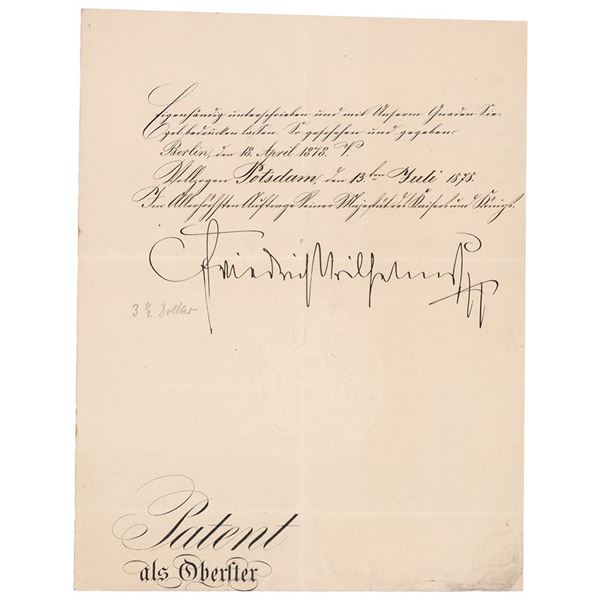 Eigenhändig unterschrieben und mit Unserm Gnaden Sie-
gel bedrucken lassen. So geschehen und gegeben
Berlin, den 18. April 1878. V.
Vollzogen Potsdam, den 13ten Juli 1878.
Im Allerhöchsten Auftrage Seiner Majestät des Kaisers und Königs.
Friedrich Wilhelm
3 1/2 Dollar
Patent
als Oberster